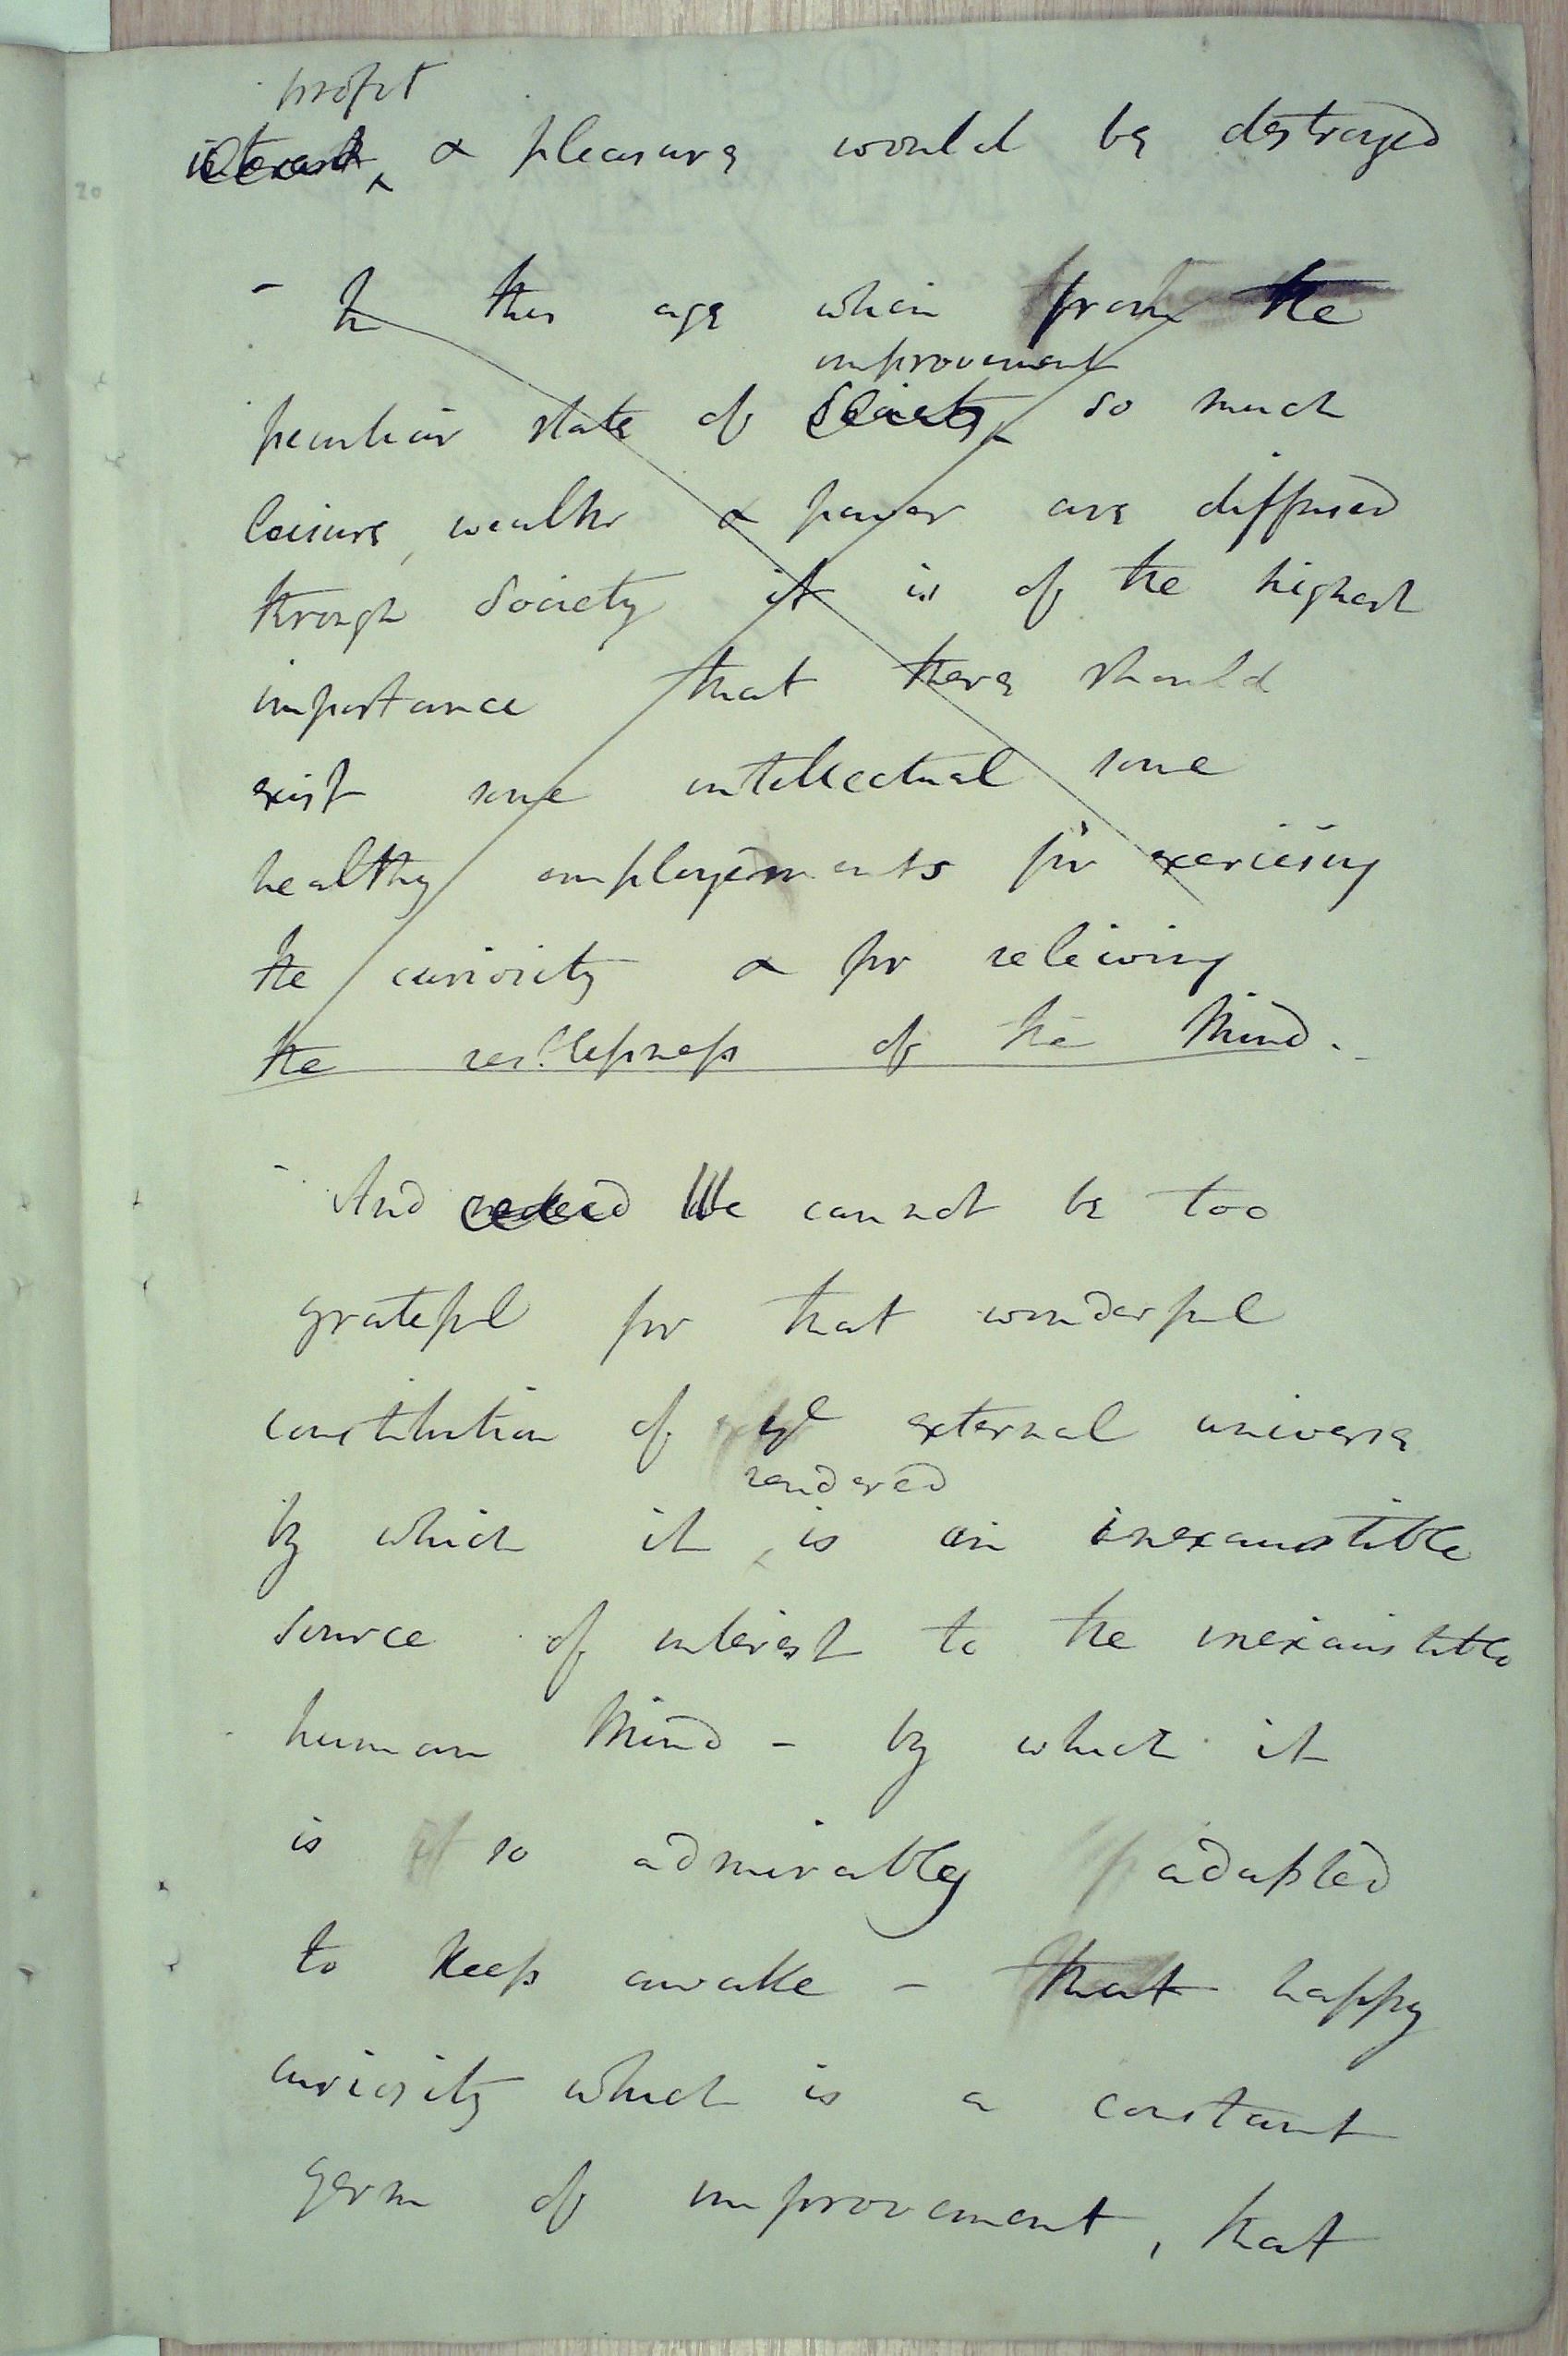 profit
interest & pleasure would be destroyed
- In this age when from the
improvement
peculiar state of Society so much
leisure, wealth & power are diffused
through Society it is of the highest
importance that there should
exist some intellectual some
healthy employments for exercising
the curiosity & for releiving
the restlessness of the Mind. -
- And indeed We cannot be too
grateful for that wonderful
constitution of ye external universe
rendered
by which it is an inexaustible
source of interest to the inexaustible
human Mind - by which it
is so admirably adapted
to keep awake - that happy
curiosity which is a constant
germ of improvement, that